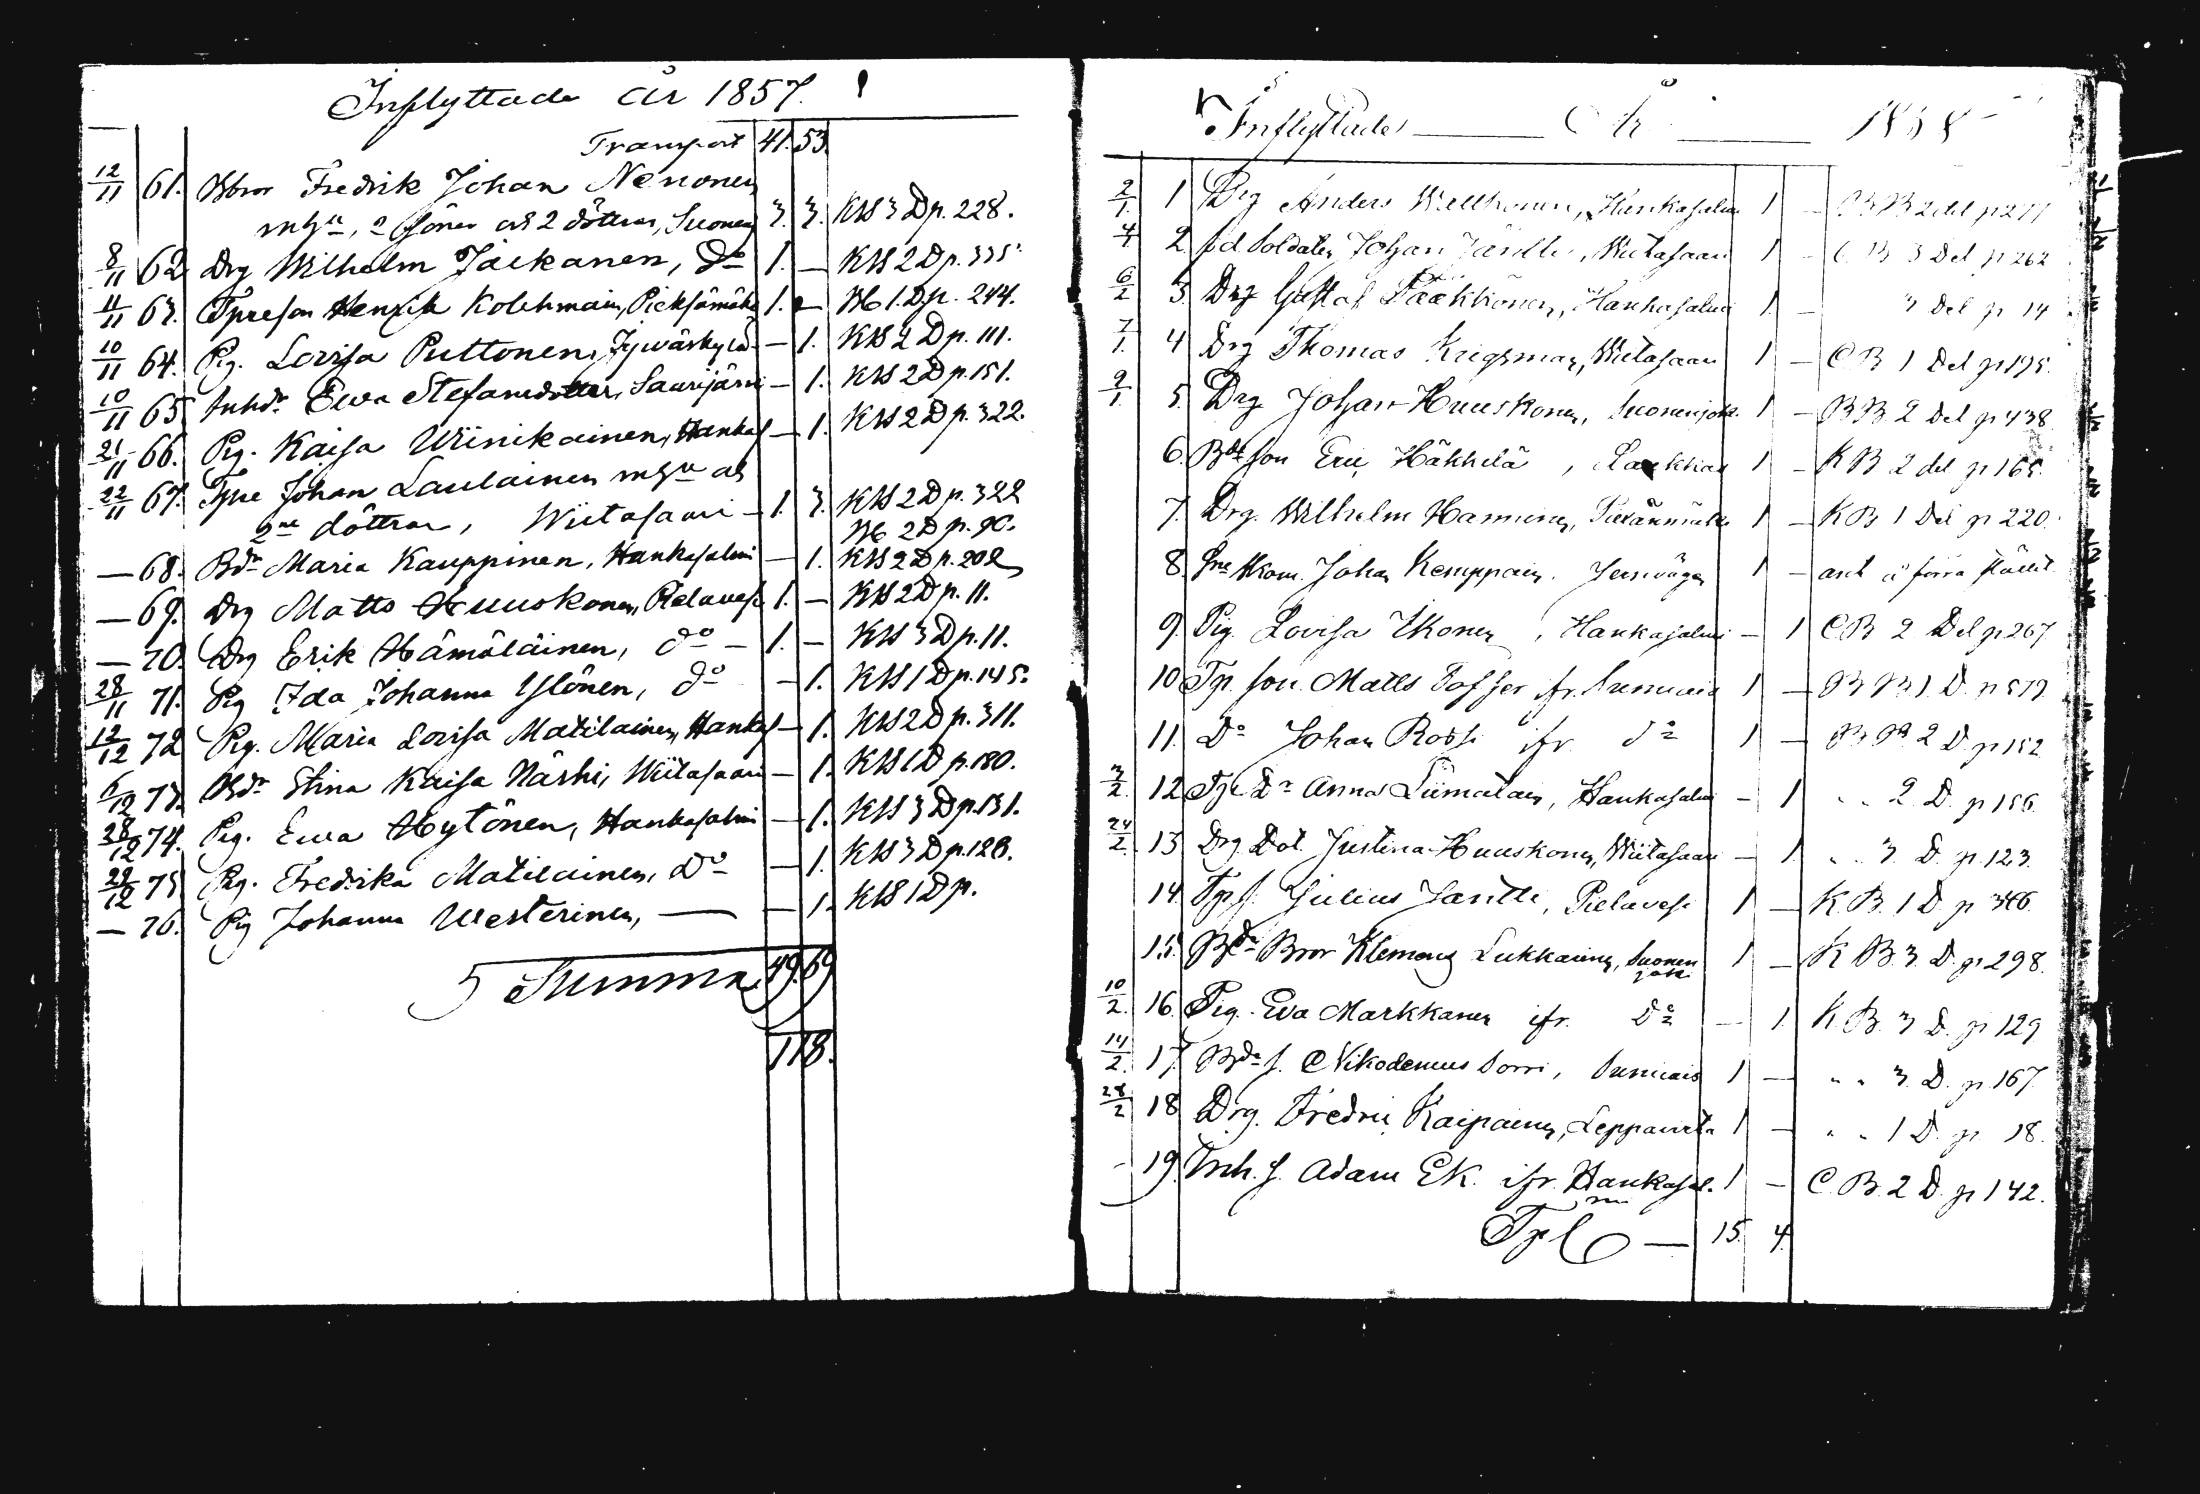 Inflyttade år 1857.
Transport 41. 53.
12/11 61. Bbror Fredrik Johan Nenonen
m hu, 2 söner och 2 döttrar, Suonen 3. 3. KB 3 D p. 228.
8/11 62 Drg Wilhelm Jäikanen, do 1. — KB 2 D p. 335
11/11 63. Tpreson Henrik Kolehmain, Pieksämäki 1. — 1 D p. 244.
10/11 64. Pig. Lovisa Puttonen, Jywäskylä — 1. KB 2 D p. 111.
10/11 65 Inhdr Ewa Stefansdotter, Saarijärvi — 1. KB 2 D p. 151.
21/11 66. Pig. Kaisa Wiinikainen, Hankas — 1. KB 2 D p. 322.
22/11 67. Tpre Johan Laulainen m hu och
2ne döttrar, Wiitasaari — 1. 3. KB 2 D p. 322
2 D p. 90.
— 68. Bdr Maria Kauppinen, Hankasalmi — 1. KB 2 D p. 202
— 69. Drg Matts Huuskonen, Pielaves 1. — KB 2 D p. 11.
— 70. Drg Erik Hämäläinen, do — 1. — KB 3 D p. 11.
28/11 71. Pig Ida Johanna Ylönen, do — 1. KB 1 D p. 145.
12/12 72 Pig. Maria Lovisa Matilainen, Hankas — 1. KB 2 D p. 311.
6/12 73. Bdr Stina Kaisa Närhi, Wiitasaari — 1. KB 1 D p. 180.
28/12 74. Pig. Ewa Hytönen, Hankasalmi — 1. KB 3 D p. 131.
29/12 75 Pig. Fredrika Matilainen, Do — 1. KB 3 D p. 128.
— 76. Pig Johanna Westerinen, — — 1. KB 1 D p.
Summa 49. 69
118.
Inflyttade — År — 1858
2/1. 1 Drg Anders Hankasalmi 1 — BB 2 del p 277
2 fd Soldaten Johan Jäntti, Wiitasaari 1 — CB 3 Del p 262
6/2 3. Drg Gustaf Pääkkönen, Hankasalmi 1. — 3 Del p 14
7/1. 4 Drg Thomas Krigsman, Wiitasaari 1 — CB 1 Del p 195.
9/1. 5. Drg Johan Huuskonen, Suonenjok. 1 — BB 2 Del p 438
6. Bde son Eric Häkkilä, Laukkas 1 — KB 2 del p 165.
7. Drg. Wilhelm Hanninen, 1 — KB 1 Del p 220.
8. Johan Kemppain. 1 — ant å förra stället
9. Pig. Lovisa Ikonen, Hankasalmi — 1 CB 2 Del p 267
10 Tp. son Matts Toffer ifr. Sumiais 1 — BB 1 D. p 579
11. Do Johan Rossi ifr. do 1 — BB 2 D p 152
3/2. 12 Tpe Dr Anna Liimatain, Hankasalmi — 1 " " 2 D. p 156.
24/2. 13 Drg. Dot. Justina Huuskonen, Wiitasaari — 1 " " 3. D. p. 123.
14. Tp. s. Julius Jäntti, Pielavesi 1 — K.B. 1 D. p 346.
15. Bde Bror Klemens Lukkarinen, Suonen
joki 1 — K.B. 3. D. p 298.
10/2. 16. Pig. Eva Markkanen ifr. Do — 1. K.B. 3 D. p 129
14/2. 17 Bde s. Nikodemus Sorri, Sumiais 1 — " " 3. D. p. 167
28/2 18 Drg. Fredric Kaipainen, Leppävirta 1 — " " 1 D. p. 18.
- 19. Inh. s. Adam Ek. ifr. Hankasal.
mi 1 — C.B. 2 D. p 142.
Tp — 15. 4.